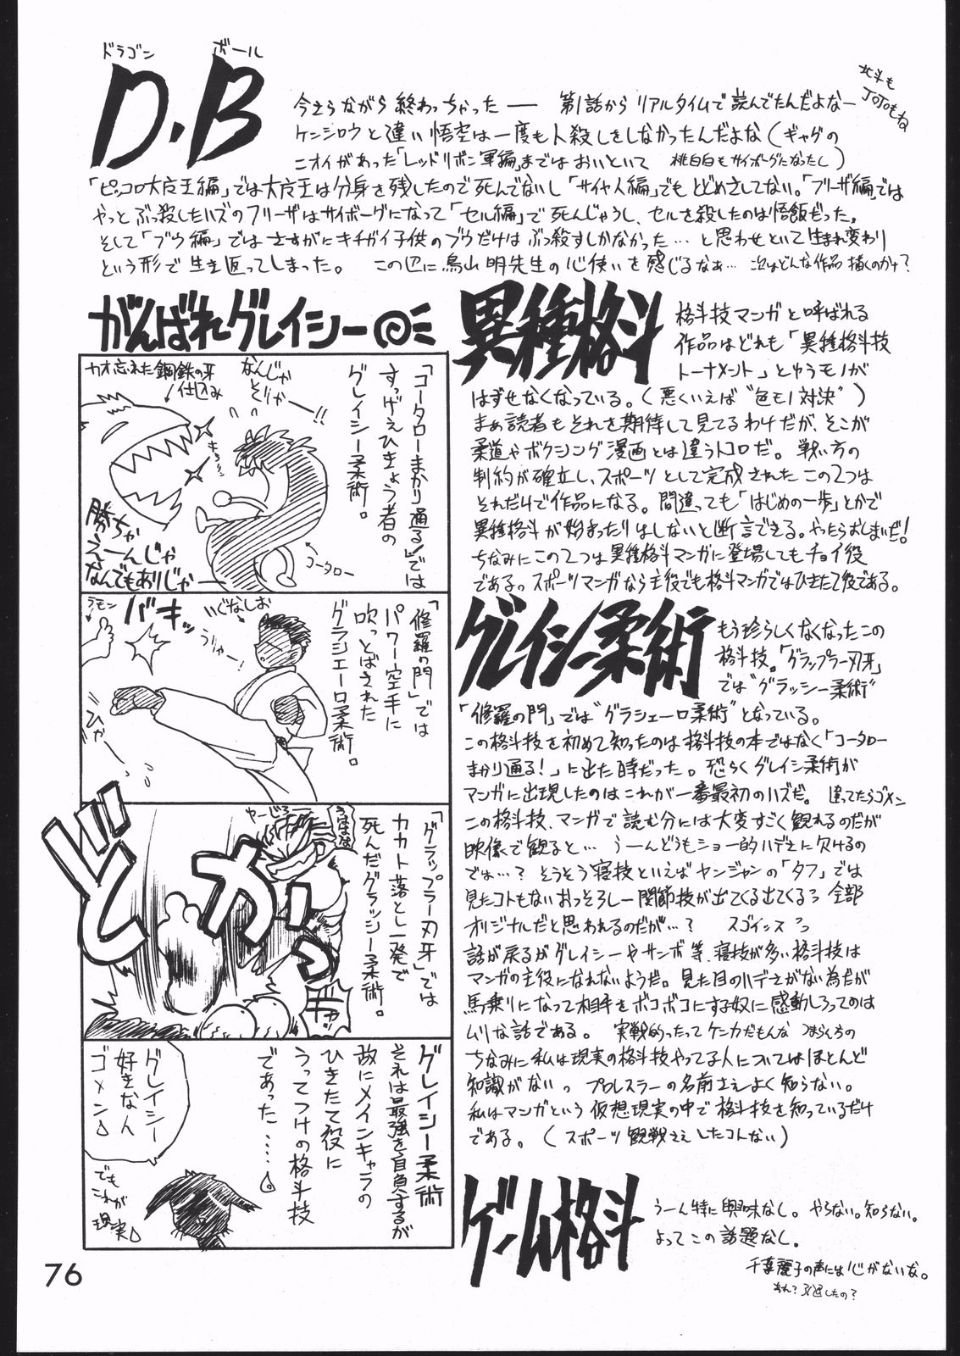 ドラゴン ボール
D.B
北斗も
JOJOもね
今さらながら終わっちゃった ー 第1話からリアルタイムで読んでたんだよなー
ケンシロウと違い悟空は一度も人殺しをしなかったんだよな(ギャグの
ニオイがあった「レッドリボン軍編」まではおいといて 桃白白もサイボーグになったし)
「ピッコロ大魔王編」では大魔王は分身を残したので死んでないし「サイヤ人編」でもとどめさしてない。「フリーザ編」では
やっとぶっ殺したハズのフリーザはサイボーグになって「セル編」で死んじゃうし、セルを殺したのは悟飯だった。
そして「ブウ編」ではさすがにキチガイ子供のブウだけはぶっ殺すしかなかった…と思わせといて生まれ変わり
という形で生き返ってしまった。 この辺に鳥山明先生の心使いを感じるなぁ… 次はどんな作品描くのかナ?
がんばれグレイシー
「コータローまかり通る!」では
すっげえひきょう者の
グレイシー柔術。
なんじゃ
そりゃー!!
カオ忘れた
鋼鉄の牙
仕込み
コータロー
勝ちゃ
えーんじゃ
なんでもありじゃー
「修羅の門」では
パワー空手に
吹っとばされた
グラシェーロ柔術。
いぐなしお
うりゃー!
バキッ
ラモン
「グラップラー刃牙」では
カカト落とし一発で
死んだグラッシー柔術。
どかっ
グレイシー柔術
それは最強を自負するが
故にメインキャラの
ひきたて役に
うってつけの格斗技
であった……。
グレイシー
好きな人
ゴメン
でも
これが
現実
異種格斗
格斗技マンガと呼ばれる
作品はどれも「異種格斗技
トーナメント」とゆうモノが
はずせなくなっている。(悪くいえば“色もノ対決”)
まぁ読者もそれを期待して見てるわけだが、そこが
柔道やボクシング漫画とは違うトコロだ。 戦い方の
制約が確立し、スポーツとして完成されたこの2つは
それだけで作品になる。間違っても「はじめの一歩」とかで
異種格斗が始まったりはしないと断言できる。やったらおしまいだ!
ちなみにこの2つは異種格斗マンガに登場してもチョイ役
である。スポーツマンガなら主役でも格斗マンガではひきたて役である。
グレイシー柔術
もう珍らしくなくなったこの
格斗技。「グラップラー刃牙」
では“グラッシー柔術”
「修羅の門」では“グラシェーロ柔術”となっている。
この格斗技を初めて知ったのは格斗技の本ではなく「コータロー
まかり通る!」に出た時だった。恐らくグレイシー柔術が
マンガに出現したのはこれが一番最初のハズだ。 違ってたらゴメン
この格斗技、マンガで読む分には大変すごく観れるのだが
映像で観ると… うーんどうもショー的ハデさに欠けるの
では…? そうそう寝技といえばヤンジャンの「タフ」では
見たコトもないおっそろしー関節技が出てくる出てくる 全部
オリジナルだと思われるのだが…? スゴイっス
話が戻るがグレイシーやサンボ等、寝技が多い格斗技は
マンガの主役になれないようだ。見た目のハデさがない為だが
馬乗りになって相手をボコボコにする奴に感動しろってのは
ムリな話である。 実戦的ったってケンカだもんな
ちなみに私は現実の格斗技やってる人についてはほとんど
知識がない。 プロレスラーの名前さえよく知らない。
私はマンガという仮想現実の中で格斗技を知っているだけ
である。(スポーツ観戦さえしたコトない)
ゲーム格斗
うーん特に興味なし。やらない。知らない。
よってこの話題なし。
千葉麗子の声には心がないな。
76